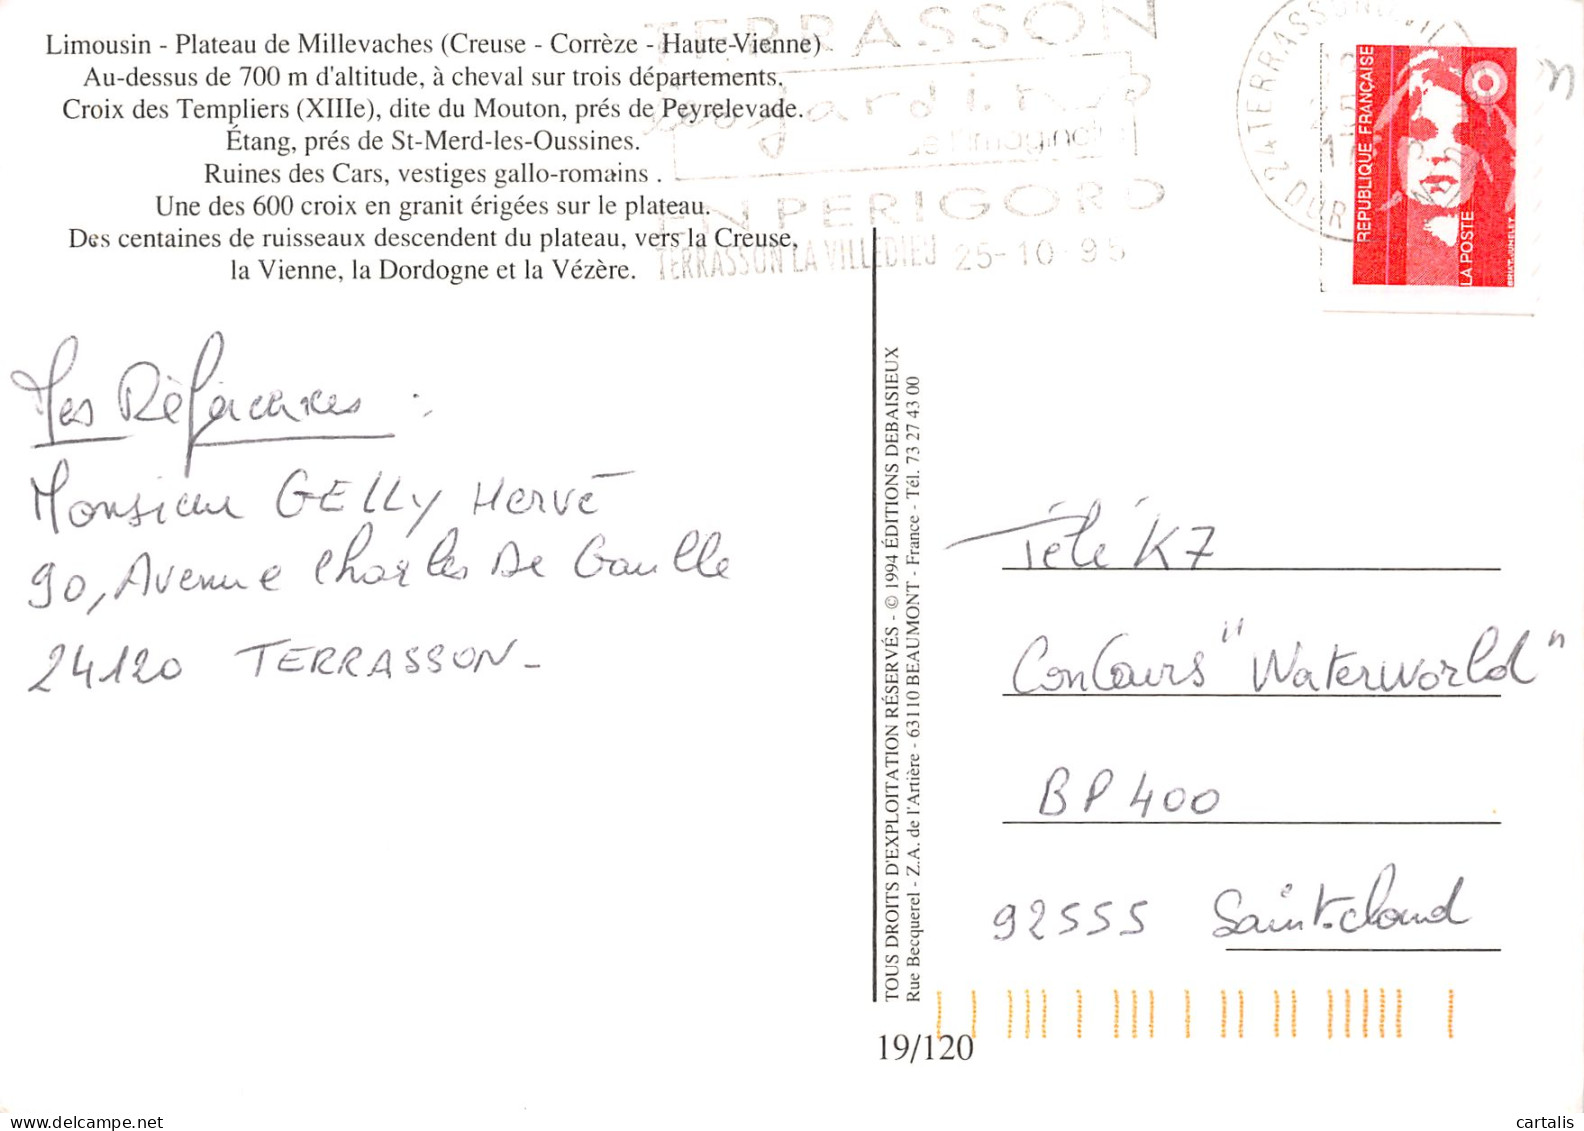 Limousin - Plateau de Millevaches (Creuse - Corrèze - Haute-Vienne)
Au-dessus de 700 m d'altitude, à cheval sur trois départements.
Croix des Templiers (XIIIe), dite du Mouton, prés de Peyrelevade.
Étang, prés de St-Merd-les-Oussines.
Ruines des Cars, vestiges gallo-romains .
Une des 600 croix en granit érigées sur le plateau.
Des centaines de ruisseaux descendent du plateau, vers la Creuse,
la Vienne, la Dordogne et la Vézère.
TERRASSON
jardins
de l'imaginaire
EN PERIGORD
TERRASSON LA VILLEDIEU 25-10-95
REPUBLIQUE FRANÇAISE
LA POSTE
BRIAT-JUMELET
Mes Références :
Monsieur GELLY Hervé
90, Avenue Charles De Gaulle
24120 TERRASSON -
TOUS DROITS D'EXPLOITATION RÉSERVÉS - © 1994 ÉDITIONS DEBAISIEUX
Rue Becquerel - Z.A. de l'Artière - 63110 BEAUMONT - France - Tél. 73 27 43 00
Télé K7
Concours "Waterworld"
BP 400
92555 Saint-cloud
19/120
delcampe.net
cartalis